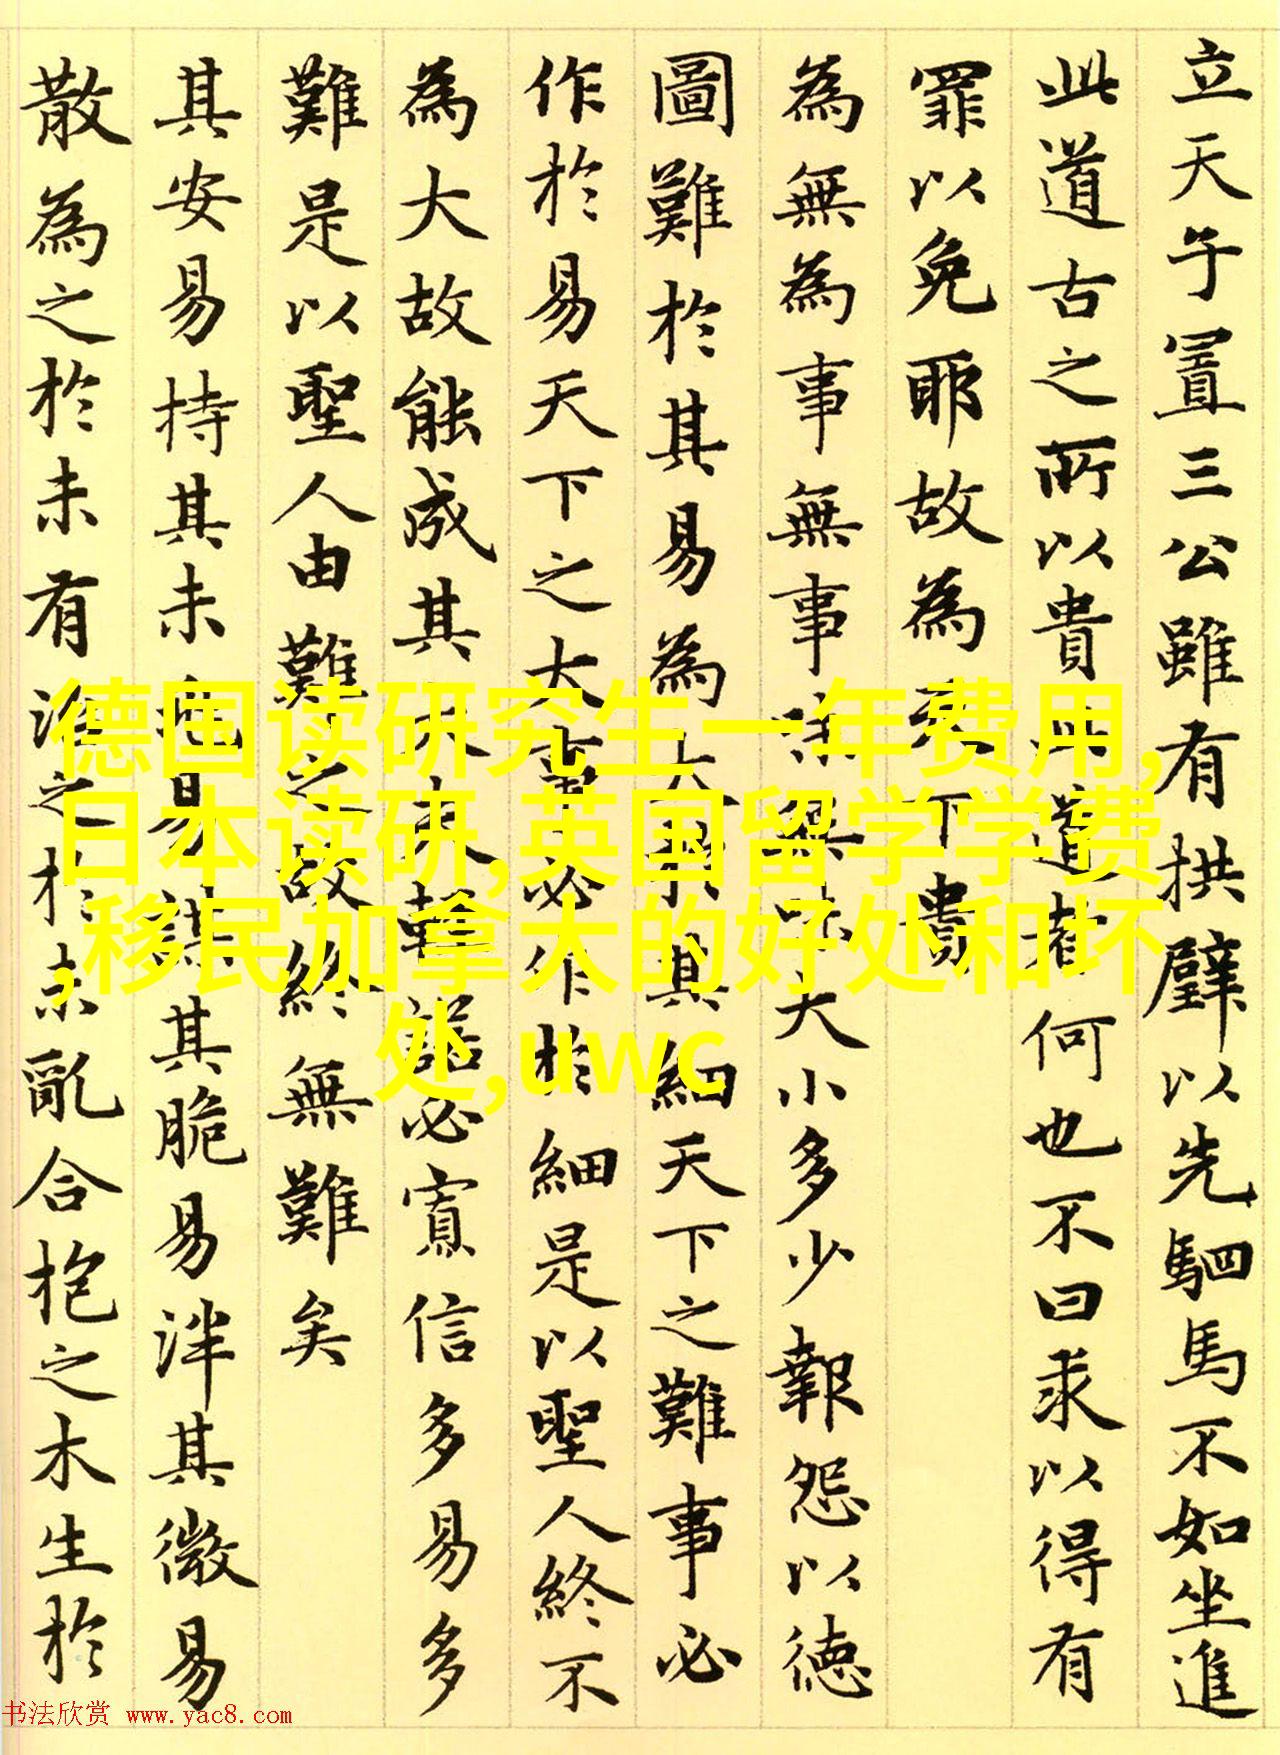 立天子置三公雖有拱璧以先駟馬不如坐進
此道古之所以貴此道者何也不曰求以得有
罪以免耶故為天下貴
為無為事無事味無味大小多少報怨以德
圖難於其易為大於其細天下之難事必
作於易天下之大事必作於細是以聖人終不
為大故能成其大夫輕諾必寡信多易多
難是以聖人由難之故終無難矣
其安易持其未兆易謀其脆易泮其微易
散為之於未有治之於未亂合抱之木生於
德国读研究生一年费用,
日本读研,英国留学学费
,移民加拿大的好处和坏
处,uwc
书法欣赏 www.yac8.com